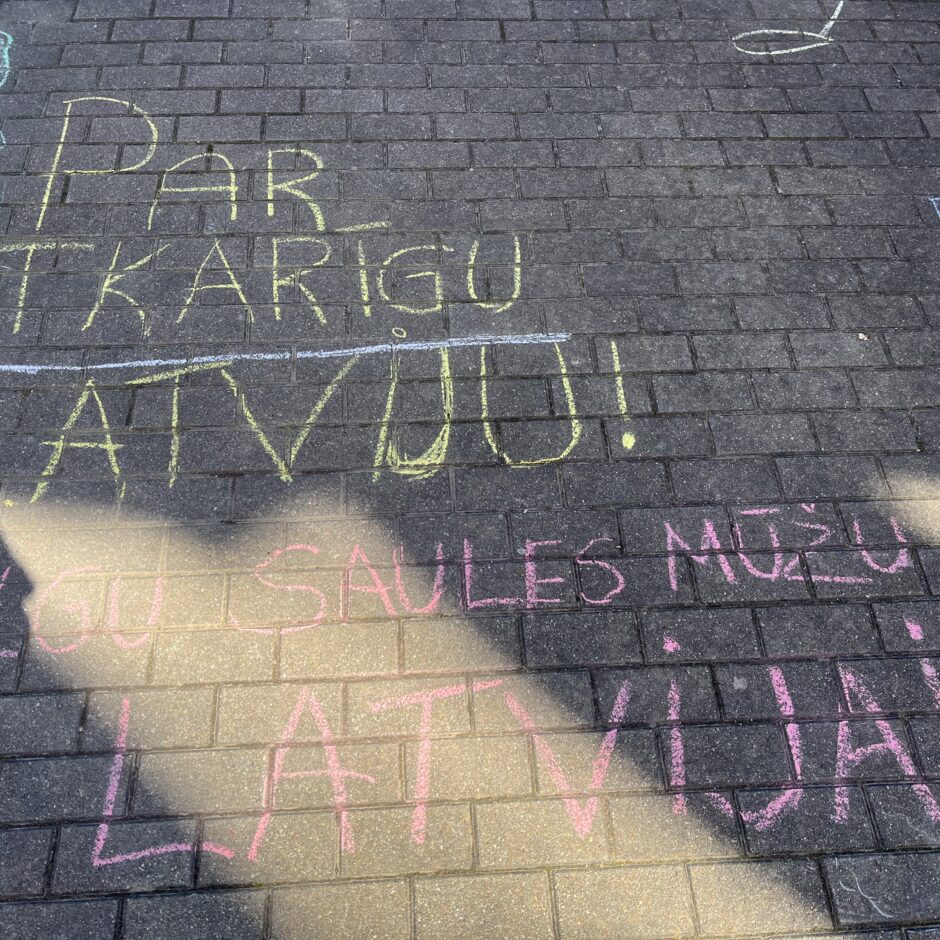 PAR
TKARĪGU
ATVIJU!
GU SAULES MŪŽU
LATVIJAI